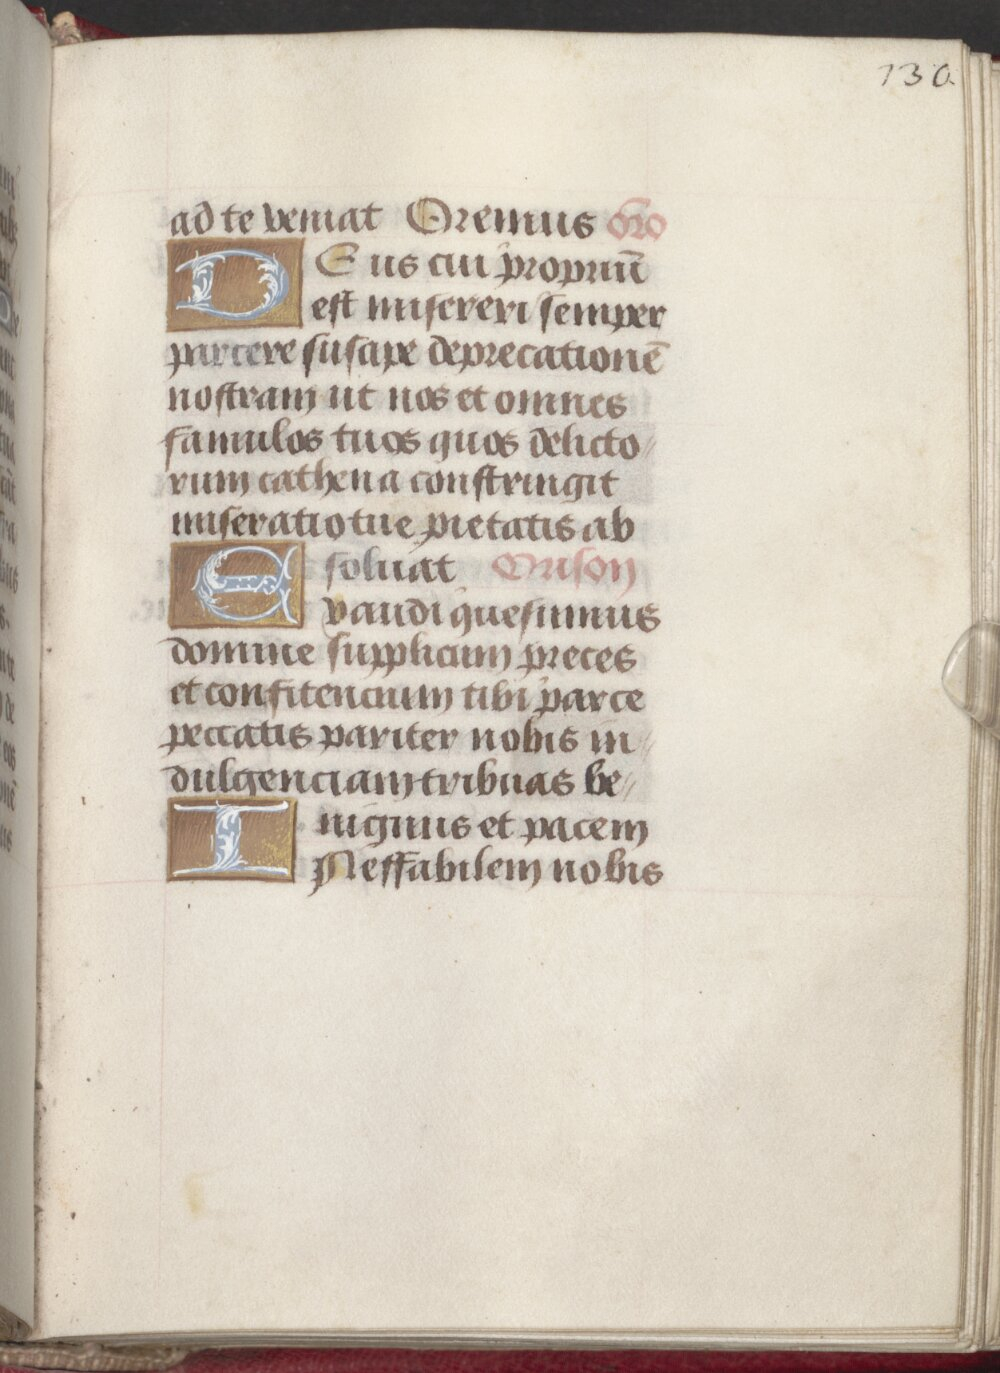 130
ad te veniat Oremus oro
DEus cui propriū
est misereri semper
parcere suscipe deprecationē
nostram ut nos et omnes
famulos tuos quos delicto
rum cathena constringit
miseratio tue pietatis ab
soluat Orison
Exaudi quesumus
domine supplicum preces
et confitencium tibi parce
peccatis pariter nobis in
dulgenciam tribuas be
nignus et pacem
INeffabilem nobis